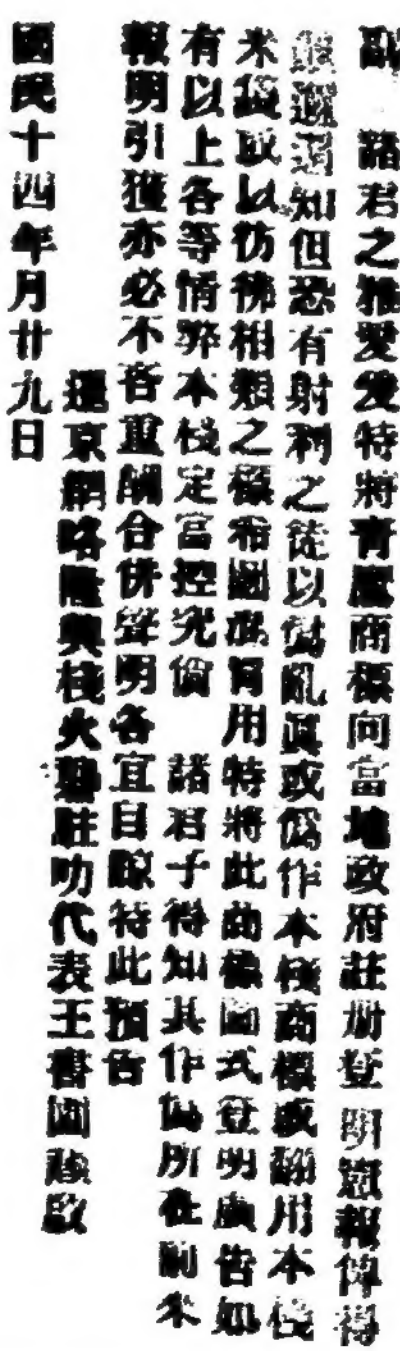 副 諸君之雅愛爰特將青鷹商標向當地政府註册登明憲報俾得
衆邇週知但恐有射利之徒以僞亂真或僞作本棧商標或翻用本棧
米袋或以彷彿相類之標希圖混冐用特將此商標圖式登明廣告如
有以上各等情弊本棧定當控究倘 諸君子得知其作僞所在前來
報明引獲亦必不吝重酬合併聲明各宜自諒特此預告
暹京網略隆興棧火礱駐叻代表王書圃謹啟
國民十四年月廿九日